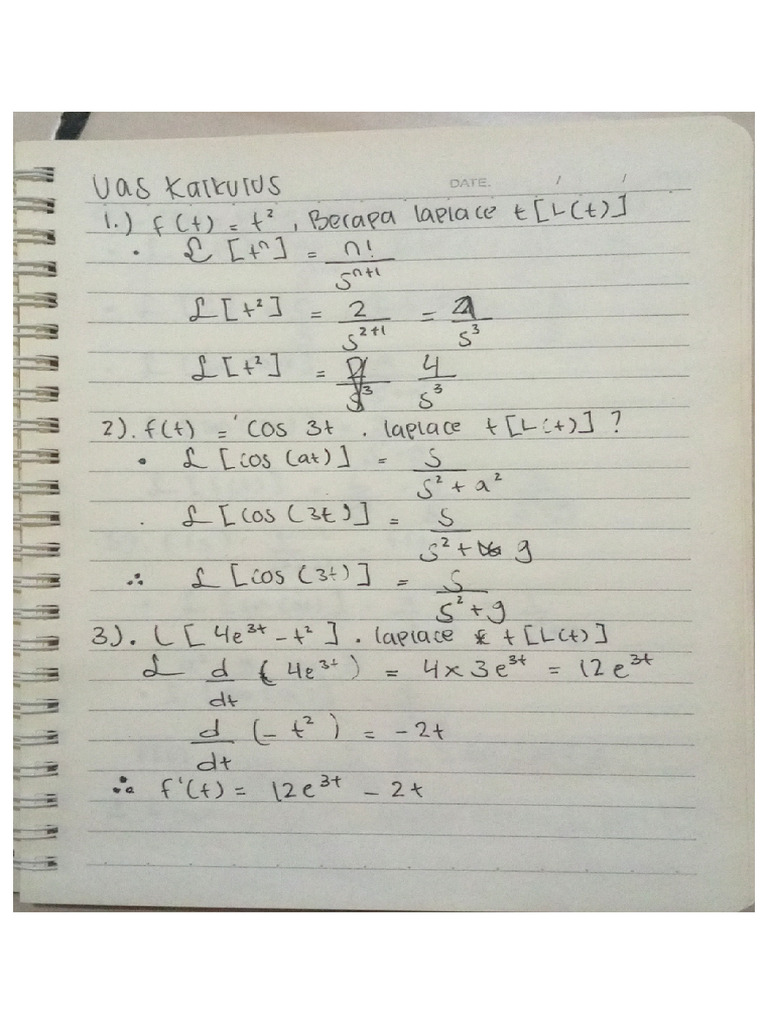 UAS Kalkulus
DATE. / /
1.) f(t) = t², Berapa laplace t[L(t)]
• ℒ [tⁿ] = n! / sⁿ⁺¹
ℒ [t²] = 2 / s²⁺¹ = / s³
ℒ [t²] = 4 / s³
2). f(t) = cos 3t . laplace t[L(t)] ?
• ℒ [cos (at)] = s / s² + a²
. ℒ [cos (3t)] = s / s² + 9
∴ ℒ [cos (3t)] = s / s² + 9
3). L[ 4e³ᵗ - t² ] . laplace t[L(t)]
ℒ d/dt (4e³ᵗ) = 4 x 3e³ᵗ = 12e³ᵗ
d/dt (- t²) = -2t
∴ f'(t) = 12e³ᵗ - 2t